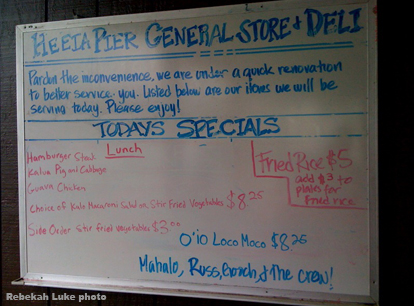 HEEIA PIER GENERAL STORE & DELI
Pardon the inconvenience, we are under a quick renovation
to better service you. Listed below are our items we will be
serving today. Please enjoy!
TODAYS SPECIALS
Lunch
Hamburger Steak
Kalua Pig and Cabbage
Guava Chicken
Choice of Kalo Macaroni Salad or Stir Fried Vegetables $8.25
Side Order Stir fried vegetables $3.00
Fried Rice $5
add $3 to
plates for
fried rice
O'io Loco Moco $8.25
Mahalo, Russ, & The crew!
Rebekah Luke photo